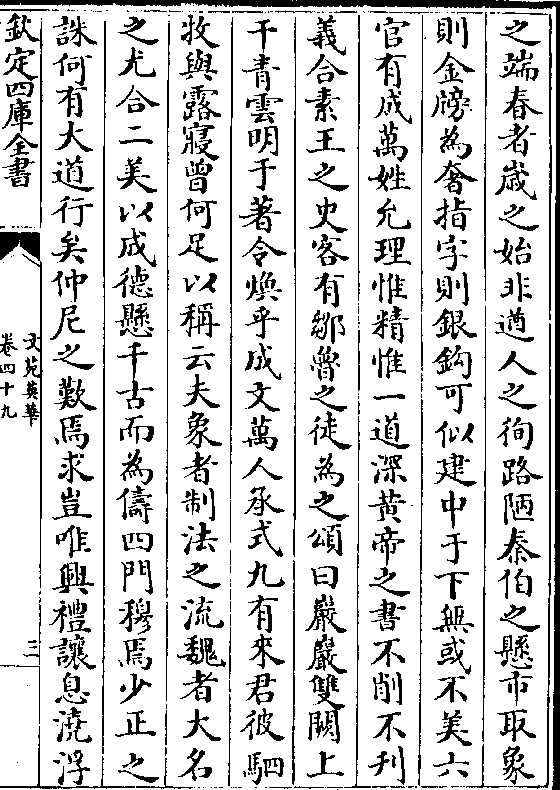 之端春者歲之始非遒人之徇路陋秦伯之懸市取象
則金牓為奢指字則銀鈎可似建中于下無或不美六
官有成萬姓允理惟精惟一道深黄帝之書不削不刋
義合素王之史客有鄒魯之徒為之頌曰巖巖雙闕上
干青雲明于著令煥乎成文萬人承式九有來君彼駉
牧與露寢曽何足以稱云夫象者制法之流魏者大名
之尤合二美以成德懸千古而為儔四門穆焉少正之
誅何有大道行矣仲尼之歎焉求豈唯興禮讓息澆浮
欽定四庫全書
文苑英華
卷四十九
三